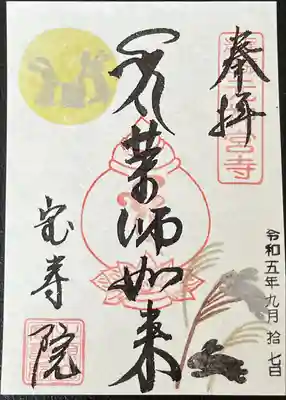 奉拝
令和五年九月拾七日
薬師如来
宝寿院